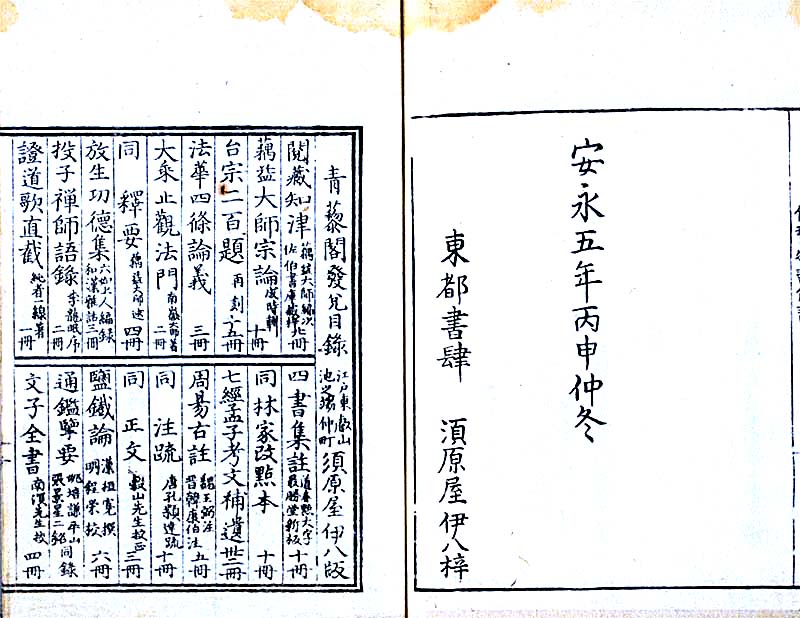 安永五年丙申仲冬
東都書肆 須原屋伊八梓
青藜閣發兌目錄 江戶東叡山池之端仲町 須原屋伊八版
閱藏知津 藕益大師編次 佐伯書庫藏梓 廿冊
藕益大師宗論 成時輯 十冊
台宗二百題 再刻 十五冊
法華四條論義 三冊
大乘止觀法門 南嶽大師著 二冊
同 釋要 藕益大師述 四冊
放生功德集 六如上人編錄 和漢雜話三冊
投子禪師語錄 李龍眠序 二冊
證道歌直截 一線著 一冊
四書集註 道春點大字 最勝堂新板 十冊
同 林家改點本 十冊
七經孟子考文補遺 卅二冊
周易古註 魏王弼注 晉韓康伯注 五冊
同 注疏 唐孔穎達疏 十冊
同 正文 叡山先生校正 三冊
鹽鐵論 漢桓寬撰 明程榮校 六冊
通鑑擥要 姚培謙平山 張景星二銘 同錄
文子全書 南溟先生校 四冊